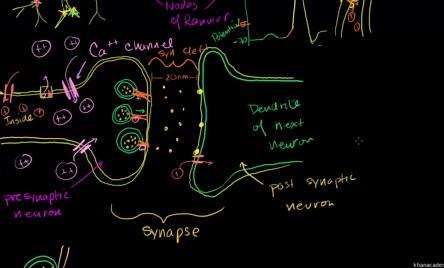 Nodes
of Ranvier
Potential
-70
Ca++ channel
syn cleft
20nm
++
++
++
++
++
++
++
Inside
Dendrite
of next
neuron
presynaptic
neuron
post synaptic
neuron
synapse
khanacader